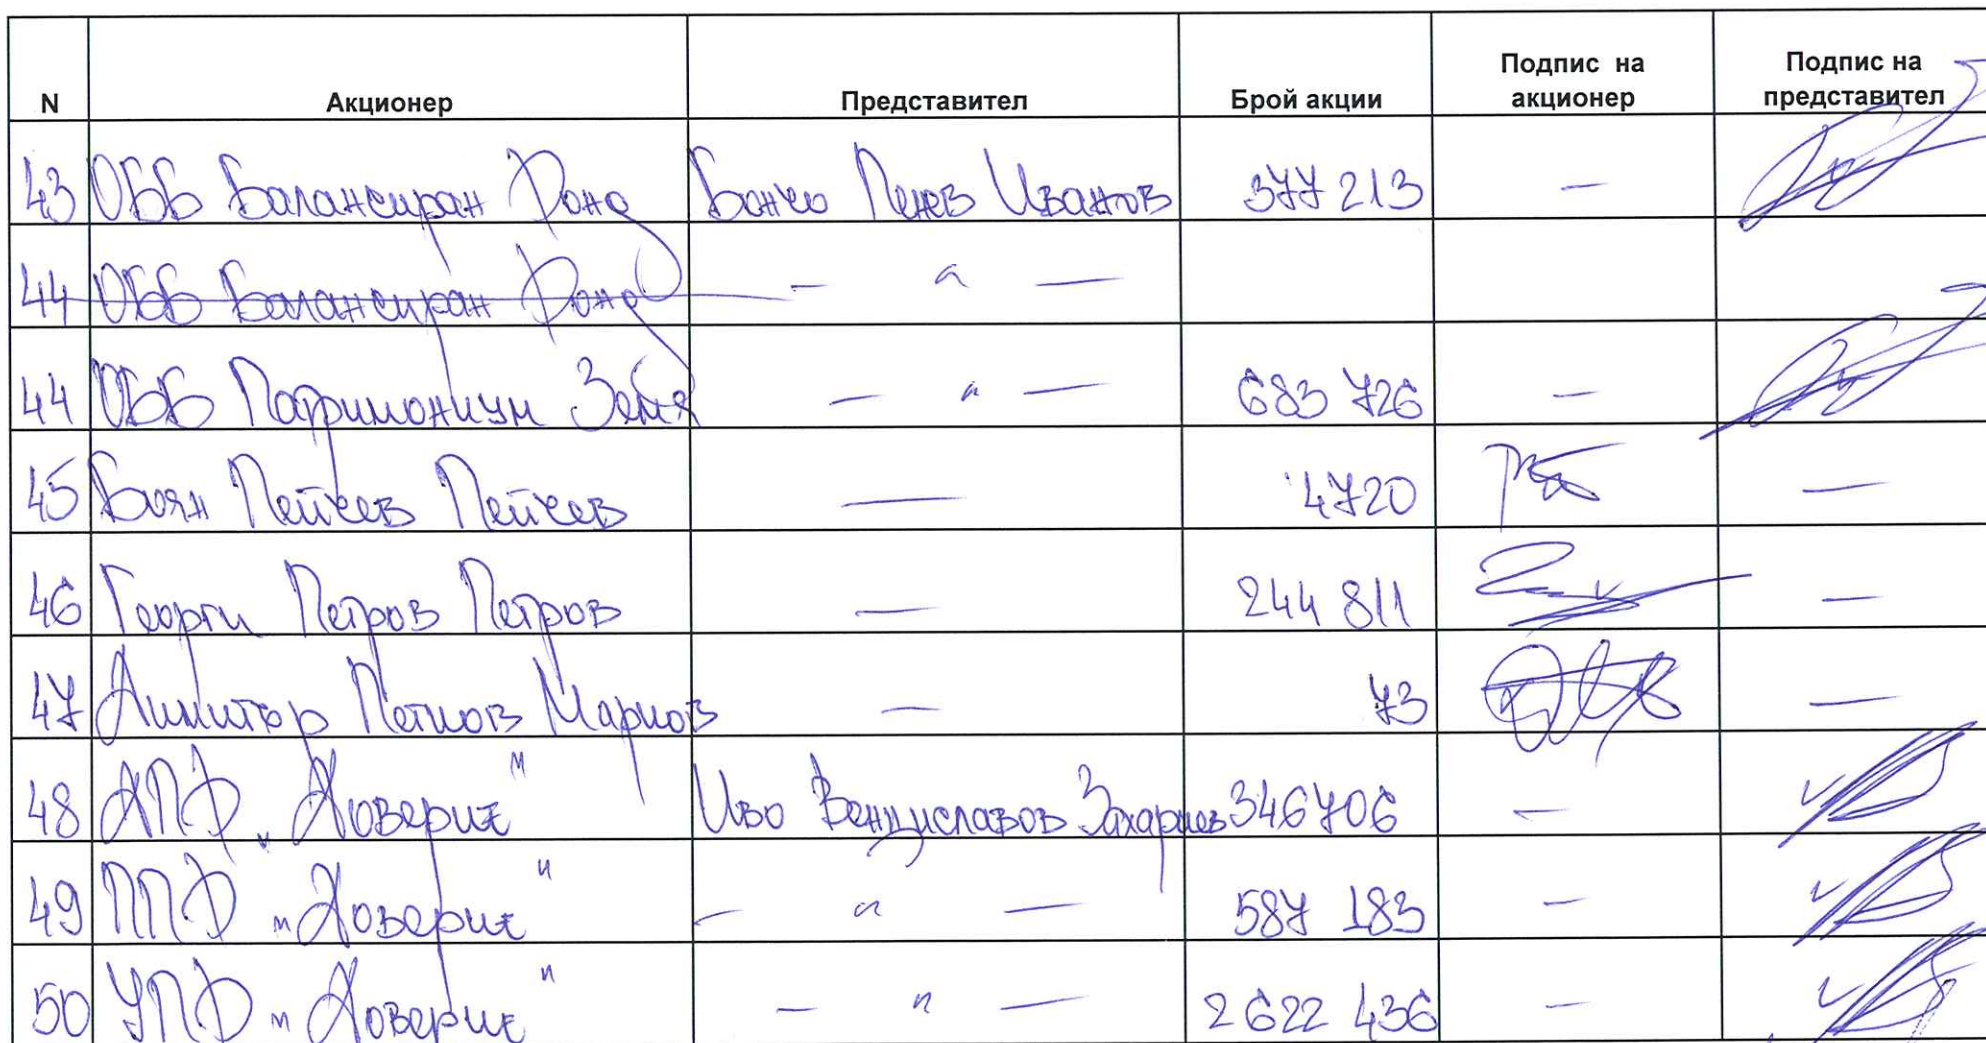 N Акционер Представител Брой акции Подпис на акционер Подпис на представител
43 ОББ Балансиран Фонд Бончо Пенев Иванов 377 213 —
44 ОББ Балансиран Фонд — " —
44 ОББ Патримониум Земя — " — 683 726 —
45 Боян Пейчев Пейчев — 4720 —
46 Георги Петров Петров — 244 811 —
47 Димитър Петков Марков — 73 —
48 ДПФ „Доверие" Иво Венциславов Захариев 346706 —
49 ППФ „Доверие" — " — 587 183 —
50 УПФ „Доверие" — " — 2 622 436 —